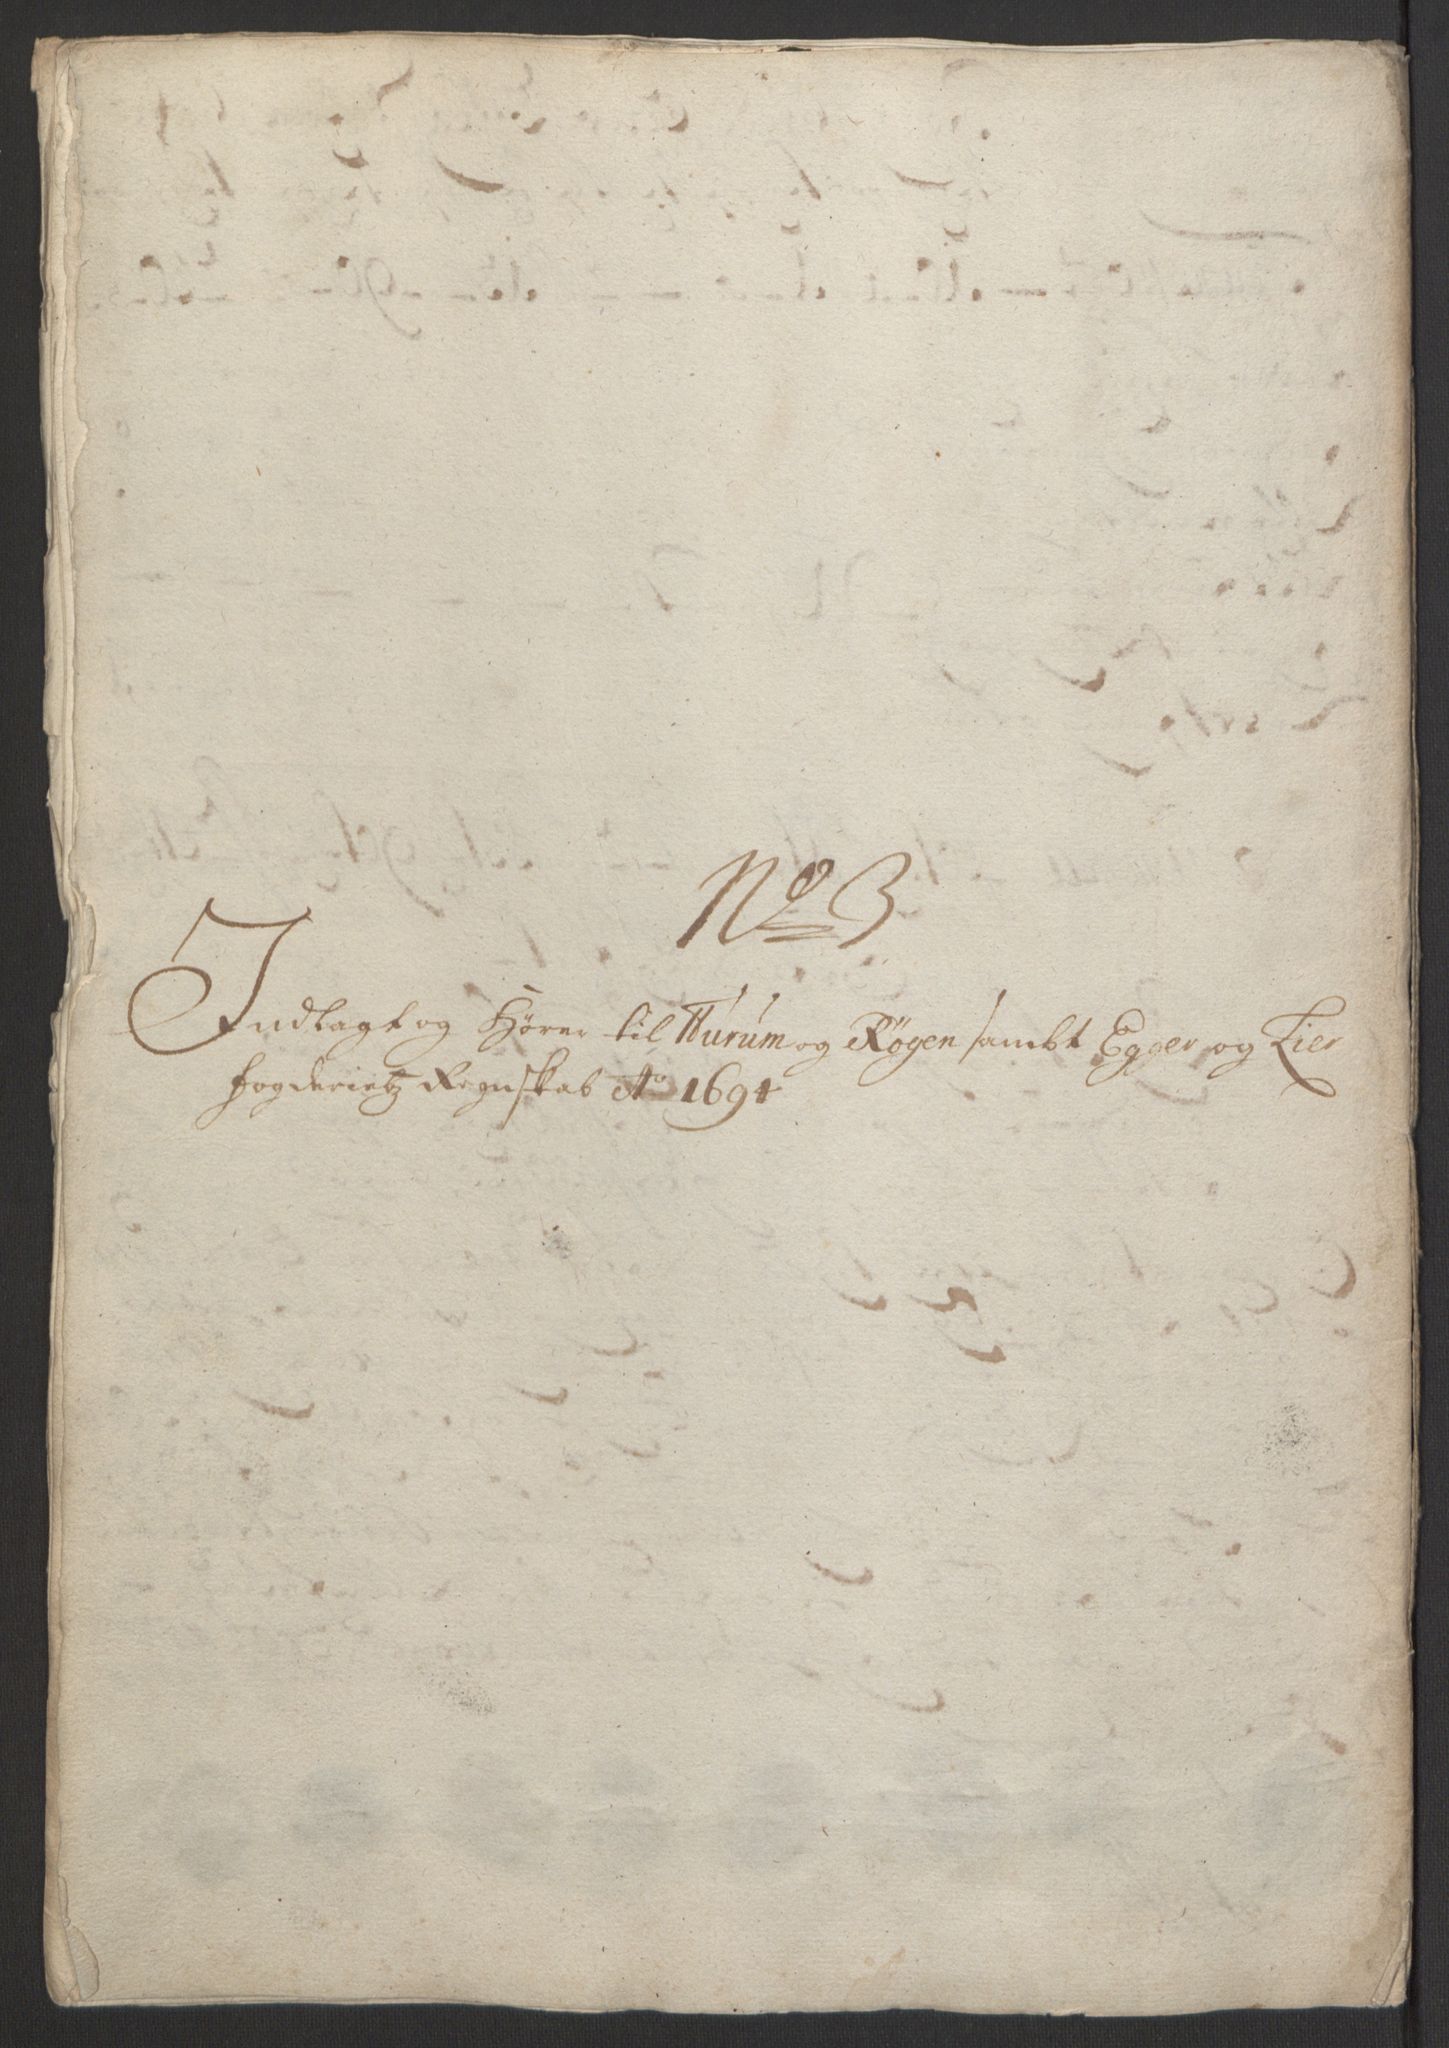 No 3
Indlagt og Hører til Hurum og Røgen sambt Egger og Lier
fogderietz Regnskab Ao 1694